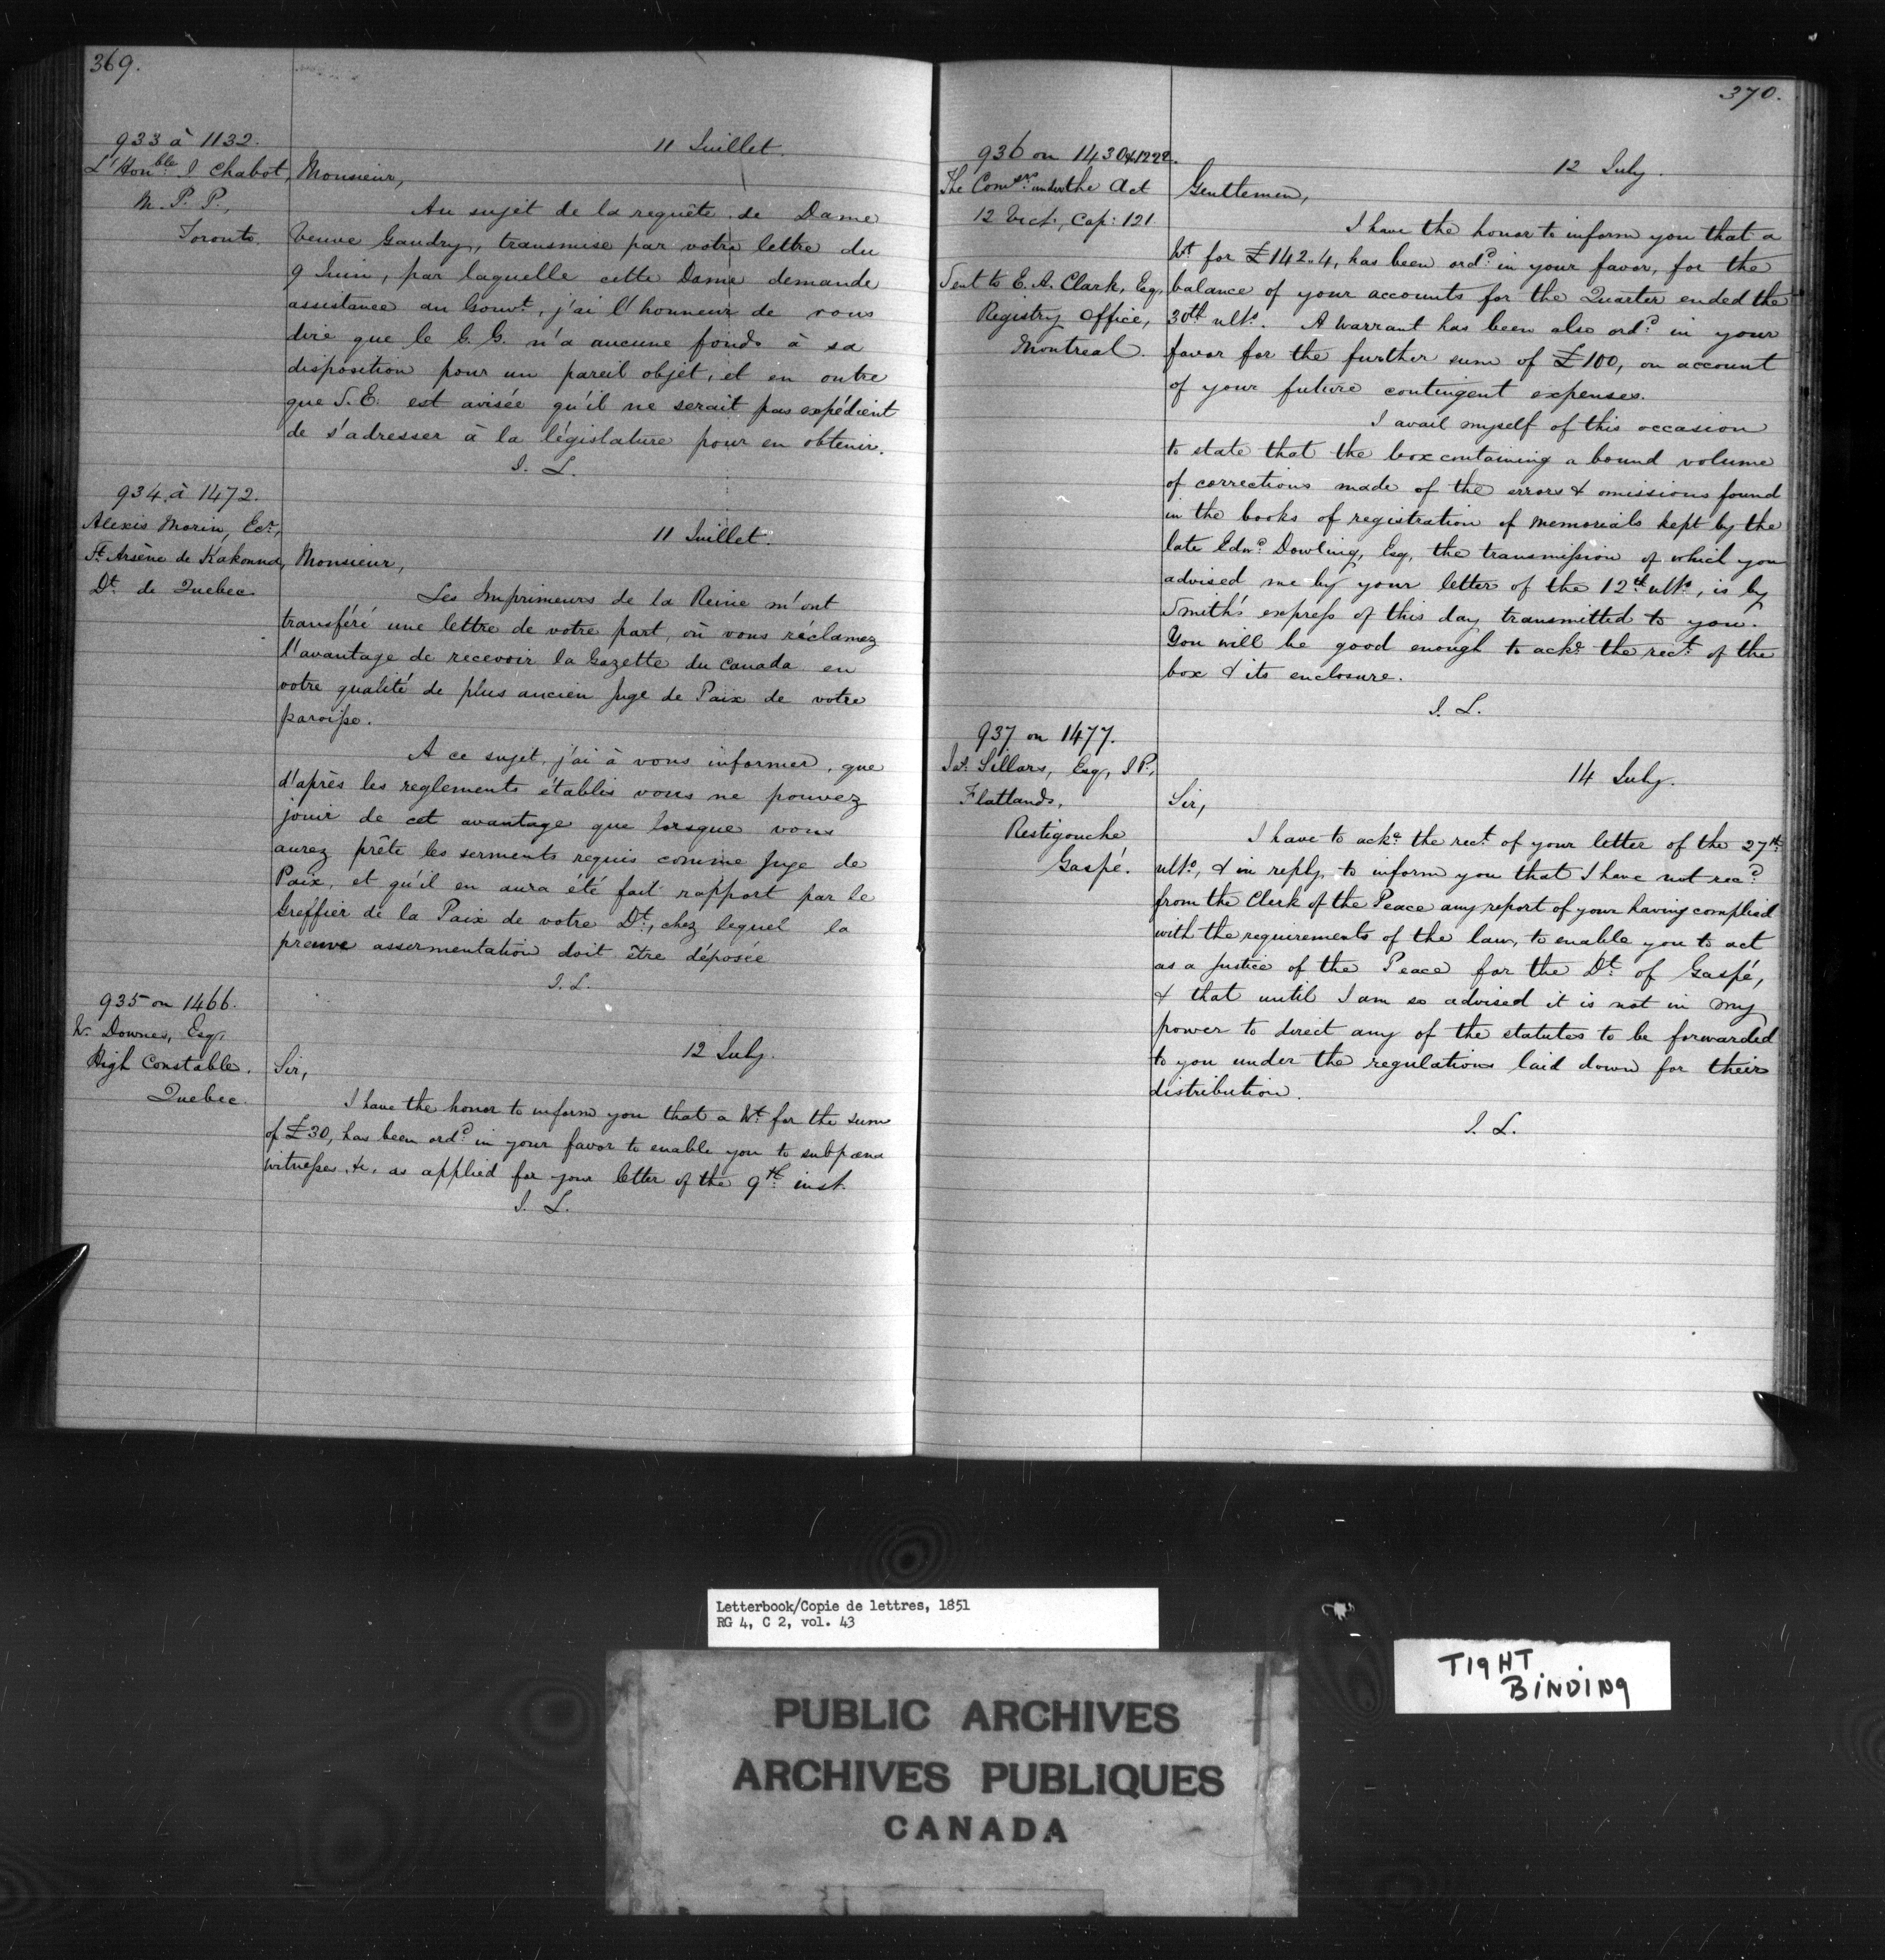 369.
933 à 1132.
11 Juillet.
L'Honble J Chabot,
M. P. P.,
Toronto.
Monsieur,
Au sujet de la requête de Dame
Veuve Gaudry, transmise par votre lettre du
9 Juin, par laquelle cette Dame demande
assistance au Gouvt., j'ai l'honneur de vous
dire que le G. G. n'a aucune fonds à sa
disposition pour un pareil objet, et en outre
que S. E. est avisée qu'il ne serait pas expédient
de s'adresser à la législature pour en obtenir.
J. L.
934 à 1472.
Alexis Morin, Ecr.,
St. Arsène de Kakouna,
Dt. de Quebec
11 Juillet.
Monsieur,
Les Imprimeurs de la Reine m'ont
transféré une lettre de votre part, où vous réclamez
l'avantage de recevoir la Gazette du Canada en
votre qualité de plus ancien Juge de Paix de votre
paroisse.
A ce sujet, j'ai à vous informer, que
d'après les reglements établis vous ne pouvez
jouir de cet avantage que lorsque vous
aurez prêté les serments requis comme Juge de
Paix, et qu'il en aura été fait rapport par le
Greffier de la Paix de votre Dt., chez lequel la
preuve assermentation doit être déposée
J. L.
935 on 1466.
W. Downes, Esq,
High Constable.
Quebec.
12 July.
Sir,
I have the honor to inform you that a Wt. for the sum
of £30, has been ordd. in your favor to enable you to subpœna
witnesses &c. as applied for your letter of the 9th. inst.
J. L.
370.
936 on 1430 & 1222.
The Comsrs. under the Act
12 Vict., Cap: 121.
Sent to E. A. Clark, Esq,
Registry Office,
Montreal.
12 July.
Gentlemen,
I have the honor to inform you that a
Wt. for £142..4, has been ordd. in your favor, for the
balance of your accounts for the Quarter ended the
30th ulto. A Warrant has been also ordd. in your
favor for the further sum of £100, on account
of your future contingent expenses.
I avail myself of this occasion
to state that the box containing a bound volume
of corrections made of the errors & omissions found
in the books of registration of Memorials kept by the
late Edwd. Dowling, Esq, the transmission of which you
advised me by your letter of the 12th. ulto., is by
Smith's express of this day transmitted to you.
You will be good enough to acke. the rect. of the
box & its enclosure.
J. L.
937 on 1477.
Jas. Sillars, Esq, J P.,
Flatlands,
Restigouche
Gaspé.
14 July.
Sir,
I have to acke. the rect. of your letter of the 27th.
ulto., & in reply, to inform you that I have not recd.
from the Clerk of the Peace any report of your having complied
with the requirements of the law, to enable you to act
as a Justice of the Peace for the Dt. of Gaspé,
& that until I am so advised it is not in my
power to direct any of the statutes to be forwarded
to you under the regulations laid down for their
distribution.
J. L.
Letterbook/Copie de lettres, 1851
RG 4, C 2, vol. 43
TIGHT
BINDING
PUBLIC ARCHIVES
ARCHIVES PUBLIQUES
CANADA